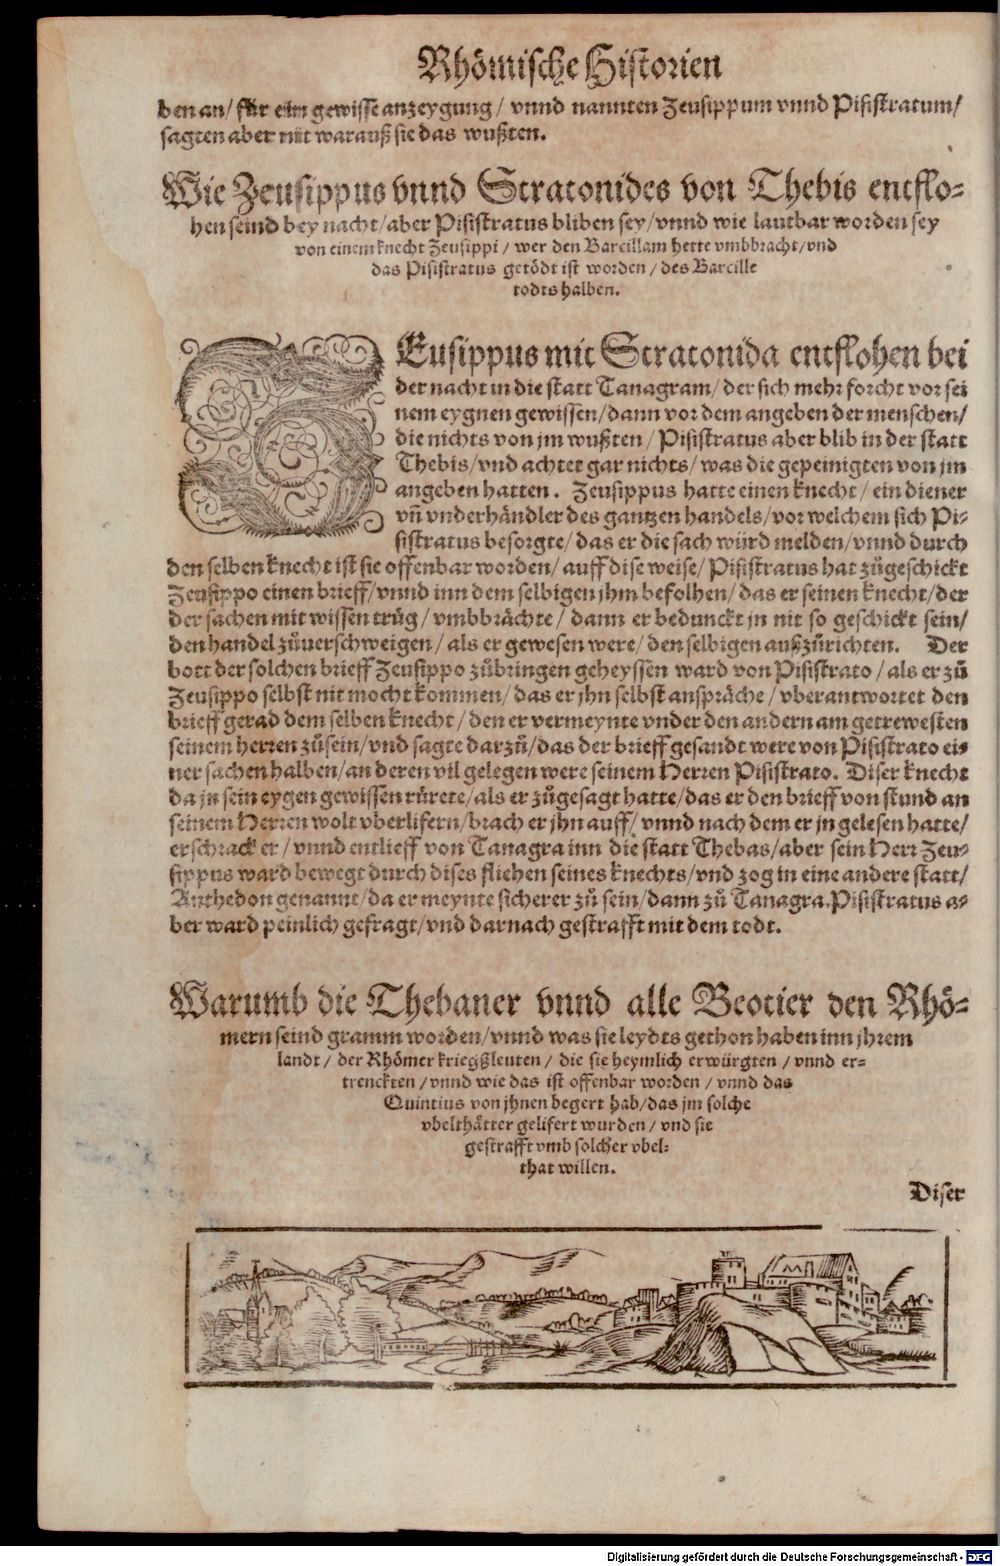 Rhömische Historien
ben an/ für ein gewisse anzeygung/ vnnd nannten Zeusippum vnnd Pisistratum/
sagten aber nit warauß sie das wußten.
Wie Zeusippus vnnd Stratonides von Thebis entflo-
hen seind bey nacht/ aber Pisistratus bliben sey/ vnnd wie lautbar worden sey
von einem knecht Zeusippi/ wer den Barcillam hette vmbbracht/ vnd
das Pisistratus getödt ist worden/ des Barcille
todts halben.
ZEusippus mit Stratonida entflohen bei
der nacht in die statt Tanagram/ der sich mehr forcht vor sei
nem eygnen gewissen/ dann vor dem angeben der menschen/
die nichts von jm wußten/ Pisistratus aber blib in der statt
Thebis/ vnd achtet gar nichts/ was die gepeinigten von jm
angeben hatten. Zeusippus hatte einen knecht/ ein diener
vñ vnderhändler des gantzen handels/ vor welchem sich Pi-
sistratus besorgte/ das er die sach würd melden/ vnnd durch
den selben knecht ist sie offenbar worden/ auff dise weise/ Pisistratus hat zůgeschickt
Zeusippo einen brieff/ vnnd inn dem selbigen jhm befolhen/ das er seinen knecht/ der
der sachen mit wissen trůg/ vmbbrächte/ dann er bedunckt jn nit so geschickt sein/
den handel zůuerschweigen/ als er gewesen were/ den selbigen außzůrichten. Der
bott der solchen brieff Zeusippo zůbringen geheyssen ward von Pisistrato/ als er zů
Zeusippo selbst nit mocht kommen/ das er jhn selbst anspräche/ vberantwortet den
brieff gerad dem selben knecht/ den er vermeynte vnder den andern am getrewesten
seinem herren zů sein/ vnd sagte darzů/ das der brieff gesandt were von Pisistrato ei-
ner sachen halben/ an deren vil gelegen were seinem Herren Pisistrato. Diser knecht
da jn sein eygen gewissen rürete/ als er zůgesagt hatte/ das er den brieff von stund an
seinem Herren wolt vberlifern/ brach er jhn auff/ vnnd nach dem er jn gelesen hatte/
erschrack er/ vnnd entlieff von Tanagra inn die statt Thebas/ aber sein Herr Zeu-
sippus ward bewegt durch dises fliehen seines knechts/ vnd zog in eine andere statt/
Anthedon genannt/ da er meynte sicherer zů sein/ dann zů Tanagra. Pisistratus a-
ber ward peinlich gefragt/ vnd darnach gestrafft mit dem todt.
Warumb die Thebaner vnnd alle Beotier den Rhö-
mern seind gramm worden/ vnnd was sie leydts gethon haben inn jhrem
landt/ der Rhömer kriegßleuten/ die sie heymlich erwürgten/ vnnd er-
trenckten/ vnnd wie das ist offenbar worden/ vnnd das
Quintius von jhnen begert hab/ das jm solche
vbelthätter gelifert wurden/ vnd sie
gestrafft vmb solcher vbel-
that willen.
Diser
Digitalisierung gefördert durch die Deutsche Forschungsgemeinschaft - DFG